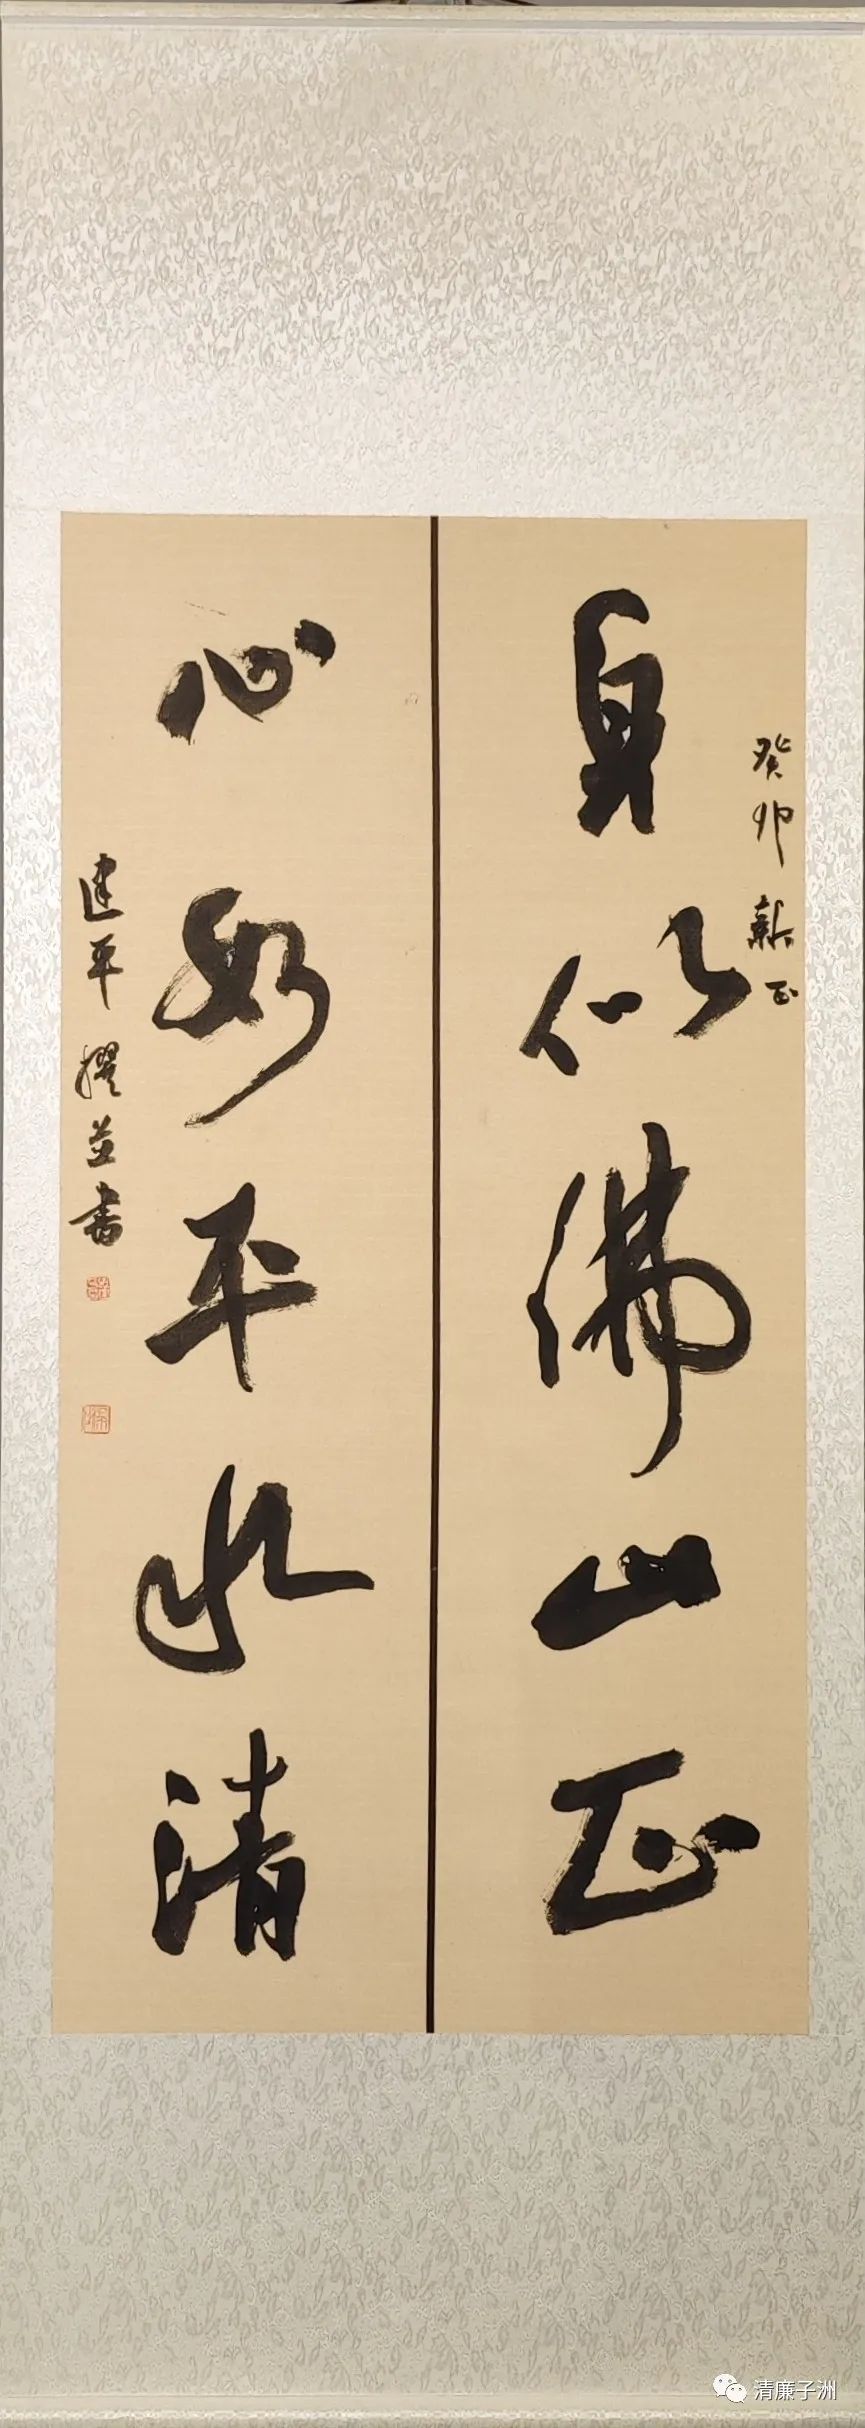 癸卯新正
身似佛山正
心如平水清
建平撰并书
清廉子洲